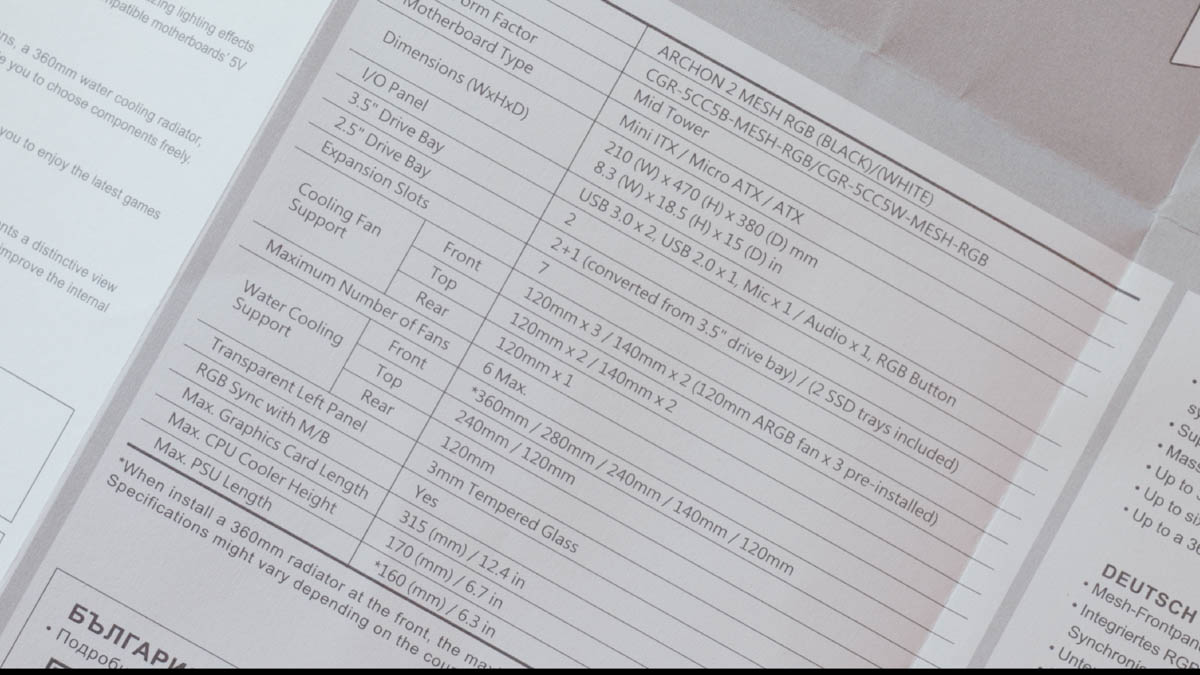 lighting effects
motherboards' 5V
a 360mm water cooling radiator,
you to choose components freely.
you to enjoy the latest games
a distinctive view
improve the internal
ARCHON 2 MESH RGB (BLACK)/(WHITE)
CGR-5CC5B-MESH-RGB/CGR-5CC5W-MESH-RGB
Factor Mid Tower
Motherboard Type Mini ITX / Micro ATX / ATX
Dimensions (WxHxD) 210 (W) x 470 (H) x 380 (D) mm
8.3 (W) x 18.5 (H) x 15 (D) in
I/O Panel USB 3.0 x 2, USB 2.0 x 1, Mic x 1 / Audio x 1, RGB Button
3.5" Drive Bay 2
2.5" Drive Bay 2+1 (converted from 3.5" drive bay) / (2 SSD trays included)
Expansion Slots 7
Cooling Fan Support Front 120mm x 3 / 140mm x 2 (120mm ARGB fan x 3 pre-installed)
Top 120mm x 2 / 140mm x 2
Rear 120mm x 1
Maximum Number of Fans 6 Max.
Water Cooling Support Front *360mm / 280mm / 240mm / 140mm / 120mm
Top 240mm / 120mm
Rear 120mm
Transparent Left Panel 3mm Tempered Glass
RGB Sync with M/B Yes
Max. Graphics Card Length 315 (mm) / 12.4 in
Max. CPU Cooler Height 170 (mm) / 6.7 in
Max. PSU Length *160 (mm) / 6.3 in
*When install a 360mm radiator at the front, the
Specifications might vary depending on the
• Up to
• Up to
• Up to a
DEUTSCH
• Mesh-Frontpan
• Integriertes RGB